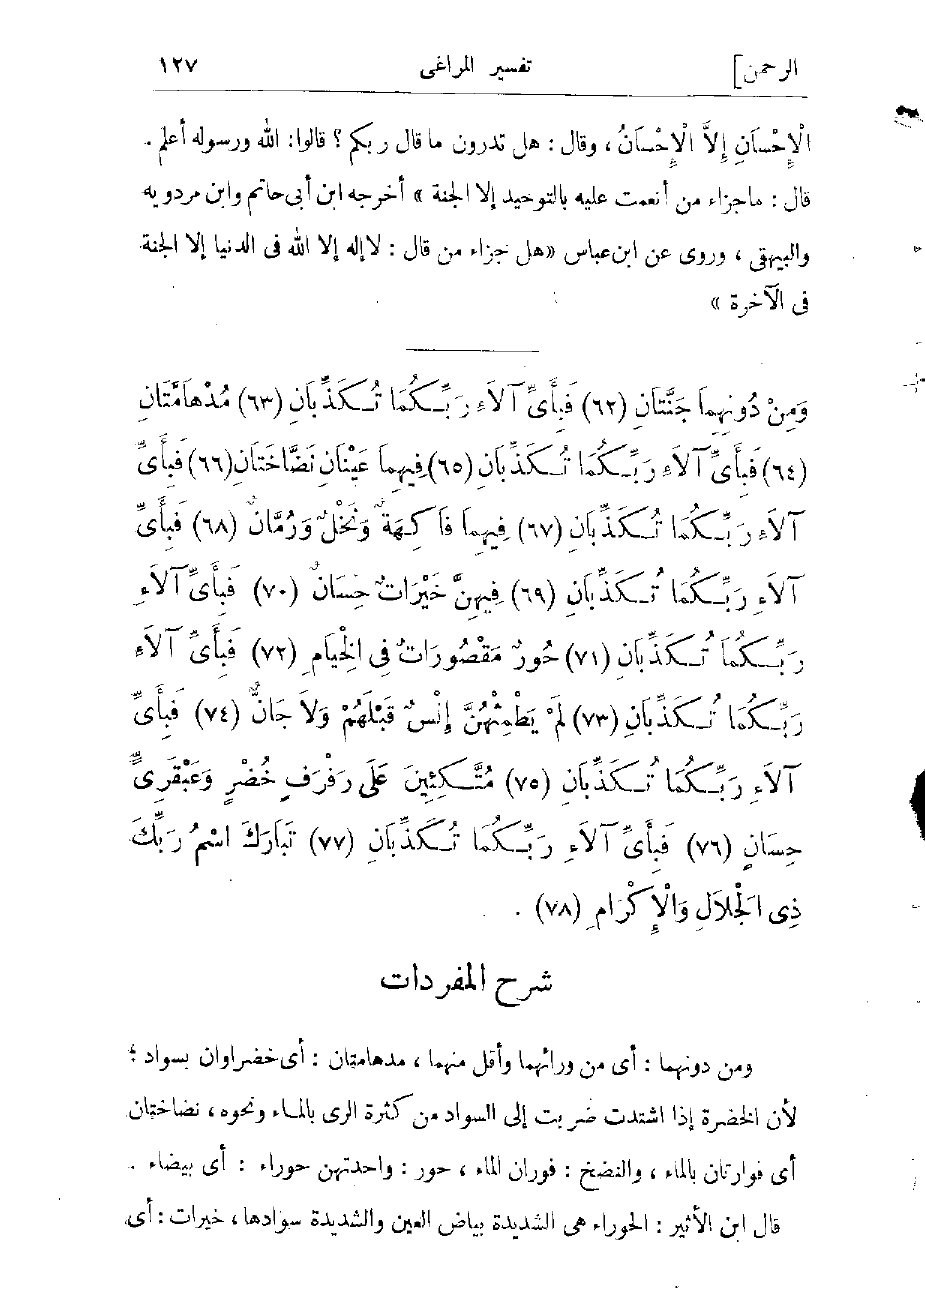 الرحمن] تفسير المراغى ١٢٧
الْإِحْسَانِ إِلاَّ الْإِحْسَانُ ، وقال : هل تدرون ما قال ربكم ؟ قالوا: الله ورسوله أعلم .
قال : ماجزاء من أنعمت عليه بالتوحيد إلا الجنة » أخرجه ابن أبى حاتم وابن مردويه
والبيهقى ، وروى عن ابن عباس «هل جزاء من قال : لا إله إلا الله فى الدنيا إلا الجنة
فى الآخرة »
وَمِنْ دُونِهِمَا جَنَّتَانِ (٦٢) فَبِأَىِّ آلَاءِ رَبِّكُمَا تُكَذِّبَانِ (٦٣) مُدْهَامَّتَانِ
(٦٤) فَبِأَىِّ آلَاءِ رَبِّكُمَا تُكَذِّبَانِ (٦٥) فِيهِمَا عَيْنَانِ نَضَّاخَتَانِ (٦٦) فَبِأَىِّ
آلَاءِ رَبِّكُمَا تُكَذِّبَانِ (٦٧) فِيهِمَا فَاكِهَةٌ وَنَخْلٌ وَرُمَّانٌ (٦٨) فَبِأَىِّ
آلَاءِ رَبِّكُمَا تُكَذِّبَانِ (٦٩) فِيهِنَّ خَيْرَاتٌ حِسَانٌ (٧٠) فَبِأَىِّ آلَاءِ
رَبِّكُمَا تُكَذِّبَانِ (٧١) حُورٌ مَقْصُورَاتٌ فِى الْخِيَامِ (٧٢) فَبِأَىِّ آلَاءِ
رَبِّكُمَا تُكَذِّبَانِ (٧٣) لَمْ يَطْمِثْهُنَّ إِنْسٌ قَبْلَهُمْ وَلَا جَانٌّ (٧٤) فَبِأَىِّ
آلَاءِ رَبِّكُمَا تُكَذِّبَانِ (٧٥) مُتَّكِئِينَ عَلَى رَفْرَفٍ خُضْرٍ وَعَبْقَرِىٍّ
حِسَانٍ (٧٦) فَبِأَىِّ آلَاءِ رَبِّكُمَا تُكَذِّبَانِ (٧٧) تَبَارَكَ اسْمُ رَبِّكَ
ذِى الْجَلَالِ وَالْإِكْرَامِ (٧٨) .
شرح المفردات
ومن دونهما : أى من ورائهما وأقل منهما ، مدهامتان : أى خضراوان بسواد ؛
لأن الخضرة إذا اشتدت ضربت إلى السواد من كثرة الرى بالماء ونحوه ، نضاختان
أى فوارتان بالماء ، والنضخ : فوران الماء ، حور : واحدتهن حوراء : أى بيضاء .
قال ابن الأثير : الحوراء هى الشديدة بياض العين والشديدة سوادها ، خيرات : أى